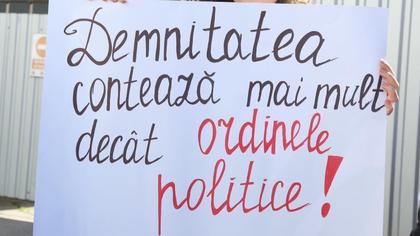 Demnitatea
contează mai mult
decât ordinele
politice!